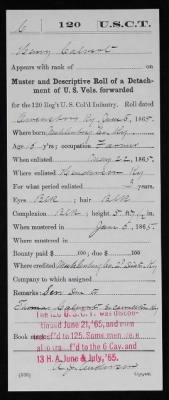 C 120 U.S.C.T.
Henry Calvert
Appears with rank of
Muster and Descriptive Roll of a Detach-
ment of U. S. Vols. forwarded
for the 120 Reg't U.S. Col'd Infantry. Roll dated
Owensboro Ky June 5, 1865.
Where born Muhlenberg Co. Ky
Age y'rs; occupation Farmer
When enlisted May 22, 1865.
Where enlisted Henderson Ky
For what period enlisted 3 years.
Eyes Blk; hair Blk
Complexion Blk; height 5 ft. in.
When mustered in June 5, 1865.
Where mustered in
Bounty paid $ 100; due $ 100
Where credited Muhlenberg Co. 2 Dist. Ky
Company to which assigned
Remarks: Ser. due to
Thomas Calvert
The 120 U.S.C.T. was discon-
tinued June 21, '65, and men
Book mark: f'd to 125. Some men were
also tra f'd to the 6 Cav. and
13 H. A. June & July, '65.
Anderson
Copyist.